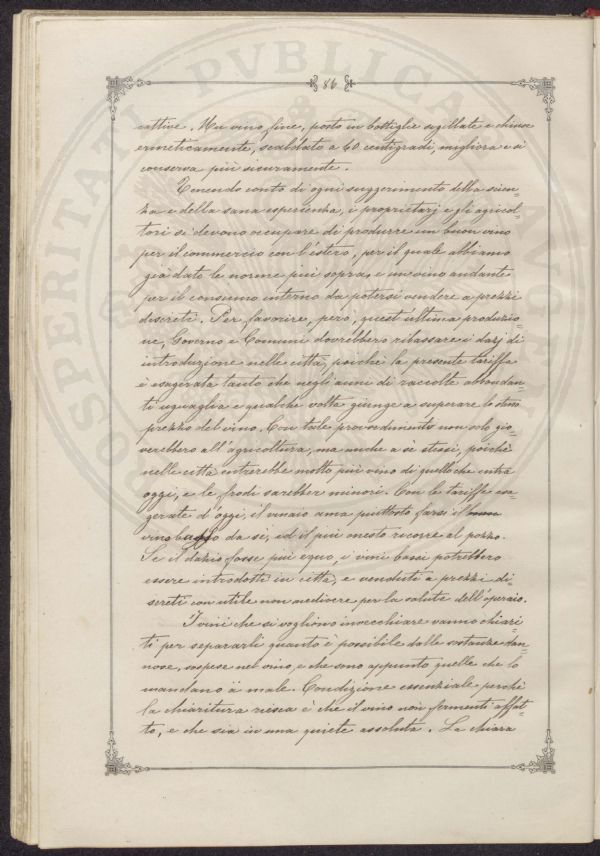 86
cattive. Un vino fine, posto in bottiglie sigillate e chiuse
ermeticamente, scaldato a 60 centigradi, migliora e si
conserva più sicuramente.
Tenendo conto di ogni suggerimento della scien=
za e della sana esperienza, i proprietarj e gli agricol=
tori si devono occupare di produrre un buon vino
per il commercio con l'estero, per il quale abbiamo
già dato le norme più sopra, e un vino andante
per il consumo interno da potersi vendere a prezzi
discreti. Per favorire, però, quest'ultima produzio=
ne, Governo e Comuni dovrebbero ribassare i dazj di
introduzione nelle città, poichè la presente tariffa
è esagerata tanto che negli anni di raccolte abbondan=
ti uguaglia e qualche volta giunge a superare lo stesso
prezzo del vino. Con tale provvedimento non solo gio=
verebbero all'agricoltura, ma anche a sè stessi, poichè
nelle città entrerebbe molto più vino di quello che entra
oggi, e le frodi sarebber minori. Con le tariffe esa=
gerate d'oggi, il vinaio ama piuttosto farsi il
vino da sè, ed il più onesto ricorre al pozzo.
Se il dazio fosse più equo, i vini bassi potrebbero
essere introdotti in città, e venduti a prezzi di=
screti con utile non mediocre per la salute dell'operaio.
I vini che si vogliono invecchiare vanno chiari=
ti per separarli quanto è possibile dalle sostanze dan=
nose, sospese nel vino, e che sono appunto quelle che lo
mandano a male. Condizione essenziale perchè
la chiaritura riesca è che il vino non fermenti affat=
to, e che sia in una quiete assoluta. La chiara
PROSPERITATI PVBLICAE AVGENDAE